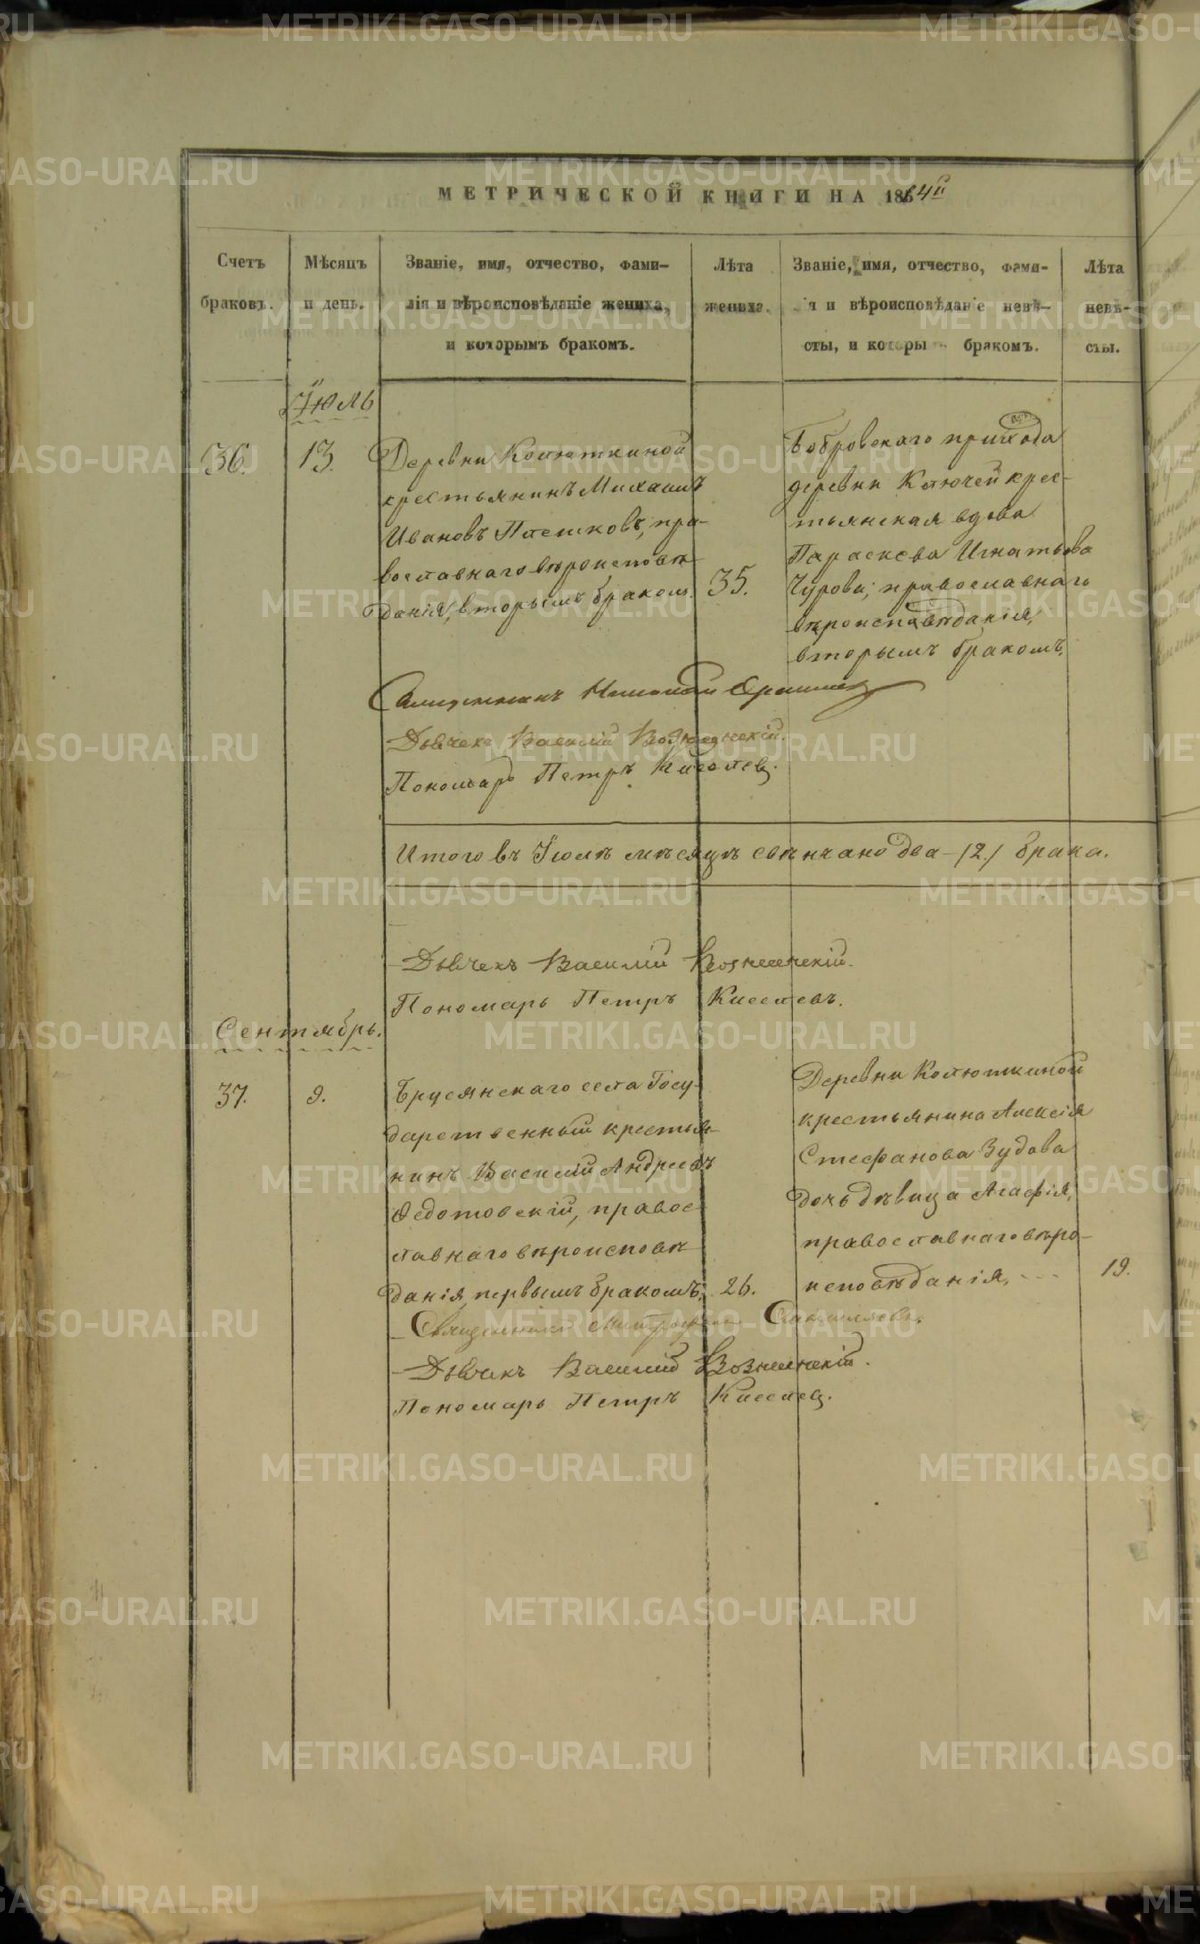 МЕТРИЧЕСКОЙ КНИГИ НА 1864й
Счетъ браковъ.
Мѣсяцъ и день.
Званіе, имя, отчество, фами-
лія и вѣроисповѣданіе жениха,
и которымъ бракомъ.
Лѣта жениха.
Званіе, имя, отчество, фами-
ія и вѣроисповѣданіе невѣ-
сты, и которы бракомъ.
Лѣта невѣ-
сты.
Іюль
36.
13.
Деревни Колюткиной
крестьянинъ Михаилъ
Ивановъ Плешковъ, пра-
вославнаго вѣроисповѣ-
данія, вторымъ браком.
35.
Бобровскаго прихода
деревни Ключей крес-
тьянская вдова
Параскева Игнатьева
Чурова, православнаго
вѣроисповѣданія,
вторымъ бракомъ.
Дьячекъ Василій Вознесенскій.
Пономарь Петръ Киселев.
Итого въ Іюлѣ мѣсяцѣ свѣнчано два /2./ брака.
Дьячекъ Василій Вознесенскій.
Пономарь Петръ Киселевъ.
Сентябрь.
37.
9.
Брусянскаго села Госу-
дарственный крестья-
нинъ Василій Андреевъ
Ѳедотовскій, правос-
лавнаго вѣроисповѣ
данія, первымъ бракомъ,
26.
Деревни Колюткиной
крестьянина Алексія
Стефанова Зудова
дочь дѣвица Агафія,
православнаго вѣро-
исповѣданія.
19.
Священникъ Митрофан
Дьячекъ Василій Вознесенскій.
Пономарь Петръ Киселев.
METRIKI.GASO-URAL.RU